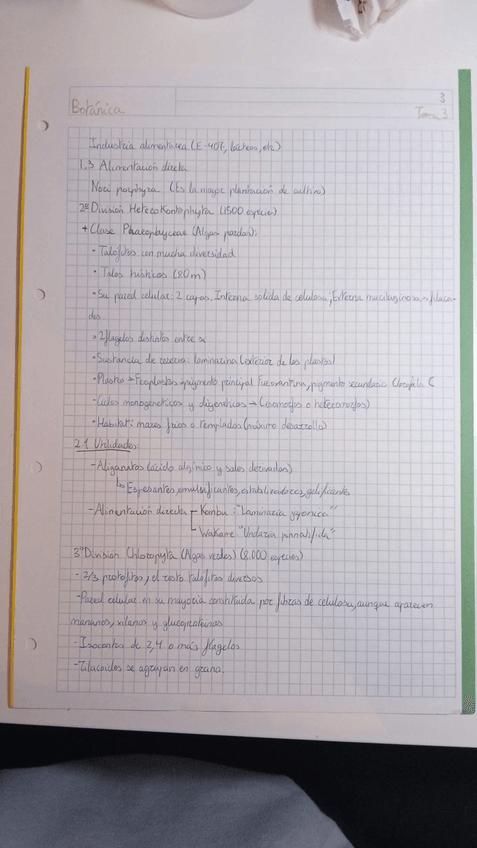 3
Botánica
Tema 3
Industria alimentaria (E-406, lácteos, etc)
1.3 Alimentación directa
Nori porphyra (Es la mayor plantación de cultivo)
2º División Heterokontophyta (1500 especies)
+ Clase Phaeophyceae (Algas pardas):
- Talofitos con mucha diversidad
- Talos hísticos (80m)
- Su pared celular: 2 capas. Interna solida de celulosa, Externa mucilaginosa
dos
- 2 flagelos distintos entre si
- Sustancia de reserva: laminarina (exterior de los plastos)
- Plastos → Feoplastos → pigmento principal Fucoxantina, pigmento secundario Clorofila C
- Ciclos monogenéticos y digenéticos → (isomorfos o heteromorfos)
- Habitat: mares frios o templados (máximo desarrollo)
2.1 Utilidades
- Aliganatos (ácido algínico y sales derivadas)
↳ Espesantes, emulsificantes, estabilizadores, gelificantes
- Alimentación directa - Konbu: "Laminaria japonica"
- Wakame "Undaria pinnatifida"
3º División Chlorophyta (Algas verdes) (8.000 especies)
- 2/3 protofitos, el resto talofitos diversos
- Pared celular en su mayoria constituida por fibras de celulosa, aunque aparecen
mananos, xilanos y glucoproteinas
- Isocontos de 2, 4 o más flagelos
- Tilacoides se agrupan en grana.